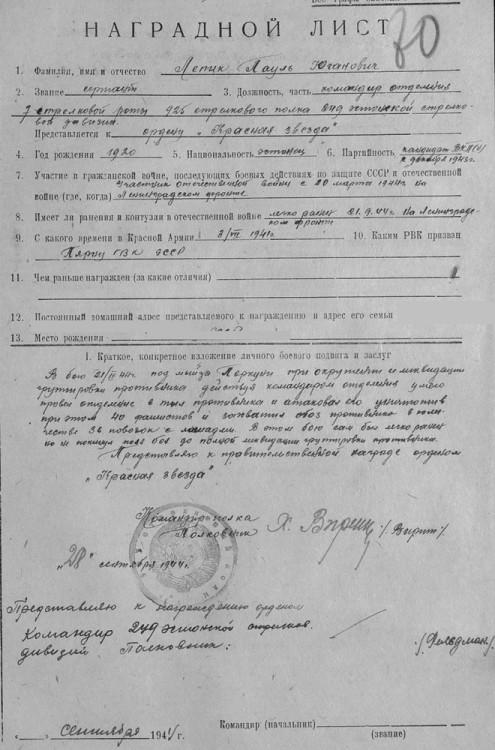 НАГРАДНОЙ ЛИСТ
70
1. Фамилия, имя и отчество Лепик Пауль Юганович
2. Звание сержант 3. Должность, часть командир отделения
7 стрелковой роты 925 стрелкового полка 249 эстонской стрелко-
вой дивизии.
Представляется к ордену „Красная звезда"
4. Год рождения 1920 5. Национальность эстонец 6. Партийность кандидат ВКП(б)
с декабря 1943 г.
7. Участие в гражданской войне, последующих боевых действиях по защите СССР и отечественной
войне (где, когда) Участник отечественной войны с 20 марта 1944г на
Ленинградском фронте
8. Имеет ли ранения и контузии в отечественной войне легко ранен 21.9.44г. На Ленинград-
ском фронте
9. С какого времени в Красной Армии 3/VII 1941г 10. Каким РВК призван
Пярну ГВК ЭССР
11. Чем раньше награжден (за какие отличия)
12. Постоянный домашний адрес представляемого к награждению и адрес его семьи
13. Место рождения
I. Краткое, конкретное изложение личного боевого подвига и заслуг
В бою 21/IX 44г. под мыза Поркуни при окружении и ликвидации
группировки противника действуя командиром отделения умело
провел отделение в тыл противника и атаковал его уничтожив
при этом 40 фашистов и захватил обоз противника в коли-
честве 36 повозок с лошадьми. В этом бою сам был легко ранен
но не покинул поля боя до полной ликвидации группировки противника.
Представляю к правительственной награде орденом
„Красная звезда"
Командир полка
Полковник /Вирит/
„28" сентября 1944г.
Представляю к награждению орденом
Командир 249 эстонской стрелков.
дивизии Полковник: /Фельдман/
Командир (начальник)
„ " Сентября 1944 г. (звание)